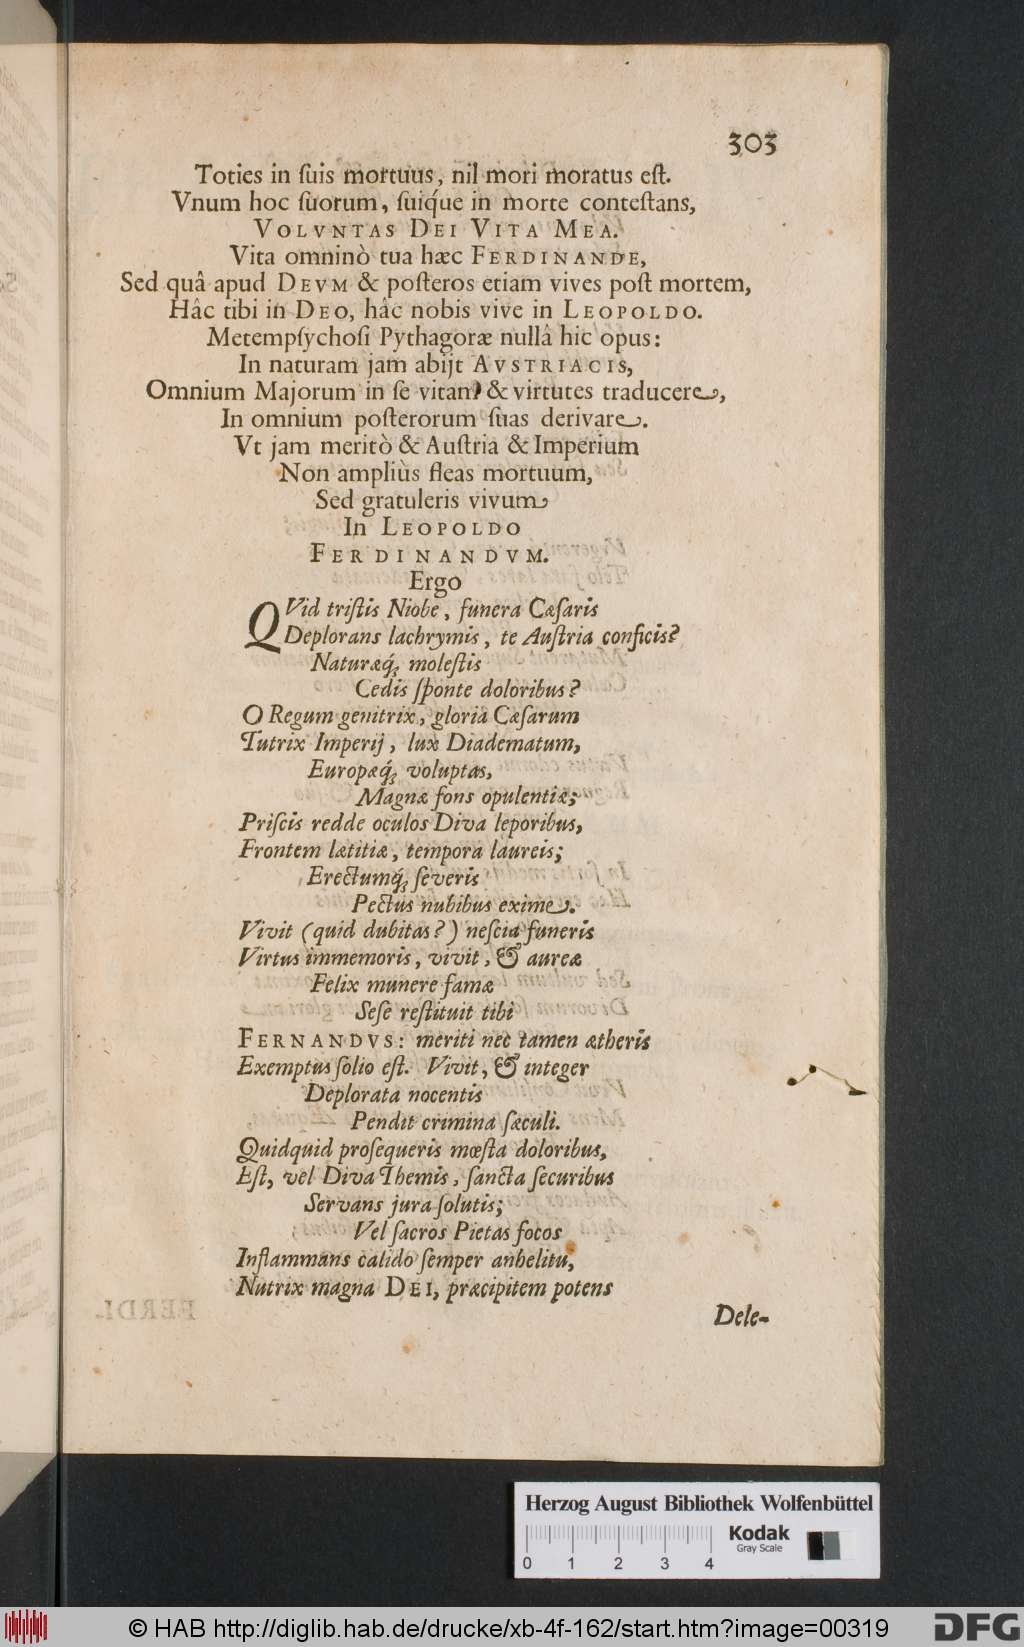 303
Toties in ſuis mortuus, nil mori moratus eſt.
Vnum hoc ſuorum, ſuiq́ue in morte conteſtans,
VOLVNTAS DEI VITA MEA.
Vita omninò tua hæc FERDINANDE,
Sed quâ apud DEVM & poſteros etiam vives poſt mortem,
Hâc tibi in DEO, hâc nobis vive in LEOPOLDO.
Metempſychoſi Pythagoræ nullâ hic opus:
In naturam jam abijt AVSTRIACIS,
Omnium Majorum in ſe vitam & virtutes traducere,
In omnium poſterorum ſuas derivare.
Vt jam meritò & Auſtria & Imperium
Non ampliùs fleas mortuum,
Sed gratuleris vivum
In LEOPOLDO
FERDINANDVM.
Ergo
QVid triſtis Niobe, funera Cæſaris
Deplorans lachrymis, te Auſtria conficis?
Naturæq́; moleſtis
Cedis ſponte doloribus?
O Regum genitrix, gloria Cæſarum
Tutrix Imperij, lux Diadematum,
Europæq́; voluptas,
Magnæ fons opulentiæ;
Priſcis redde oculos Diva leporibus,
Frontem lætitiæ, tempora laureis;
Erectumq́; ſeveris
Pectus nubibus exime.
Vivit (quid dubitas?) neſcia funeris
Virtus immemoris, vivit, & aureæ
Felix munere famæ
Seſe reſtituit tibi
FERNANDVS: meriti nec tamen ætheris
Exemptus ſolio eſt. Vivit, & integer
Deplorata nocentis
Pendit crimina ſæculi.
Quidquid proſequeris mœſta doloribus,
Eſt, vel Diva Themis, ſancta ſecuribus
Servans jura ſolutis;
Vel ſacros Pietas focos
Inflammans calido ſemper anhelitu,
Nutrix magna DEI, præcipitem potens
Dele-
FERDI.
Herzog August Bibliothek Wolfenbüttel
Kodak
Gray Scale
0 1 2 3 4
© HAB http://diglib.hab.de/drucke/xb-4f-162/start.htm?image=00319
DFG